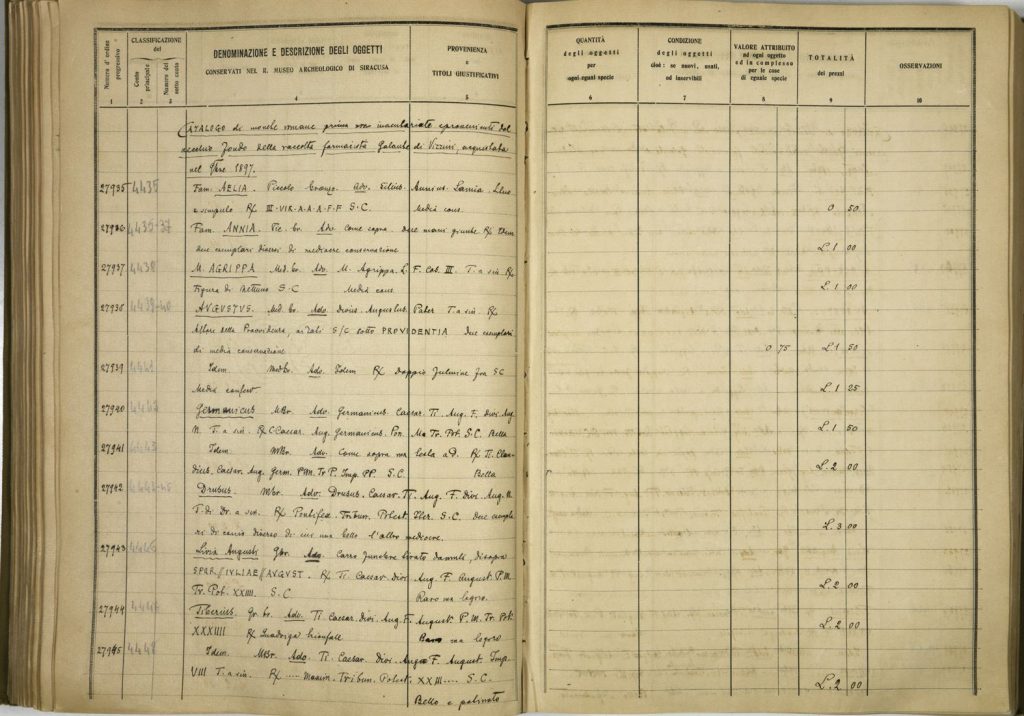 Numero d'ordine progressivo
CLASSIFICAZIONE
del
Conto principale
Numero del sotto conto
DENOMINAZIONE E DESCRIZIONE DEGLI OGGETTI
CONSERVATI NEL R. MUSEO ARCHEOLOGICO DI SIRACUSA
PROVENIENZA
e
TITOLI GIUSTIFICATIVI
1 2 3 4 5
QUANTITÀ
degli oggetti
per
ogni egual specie
CONDIZIONE
degli oggetti
cioè: se nuovi, usati,
od inservibili
VALORE ATTRIBUITO
ad ogni oggetto
ed in complesso
per le cose
di eguale specie
TOTALITÀ
dei prezzi
OSSERVAZIONI
6 7 8 9 10
CATALOGO di monete romane prima non inventariate e provenienti dal
vecchio fondo della raccolta farmacista Galante di Vizzini, acquistata
nel 9bre 1897.
27935 4435 Fam. AELIA. Piccolo bronzo. Adv. Silius. Annius. Lamia
e simpulo R) III·VIR·A·A·A·F·F S·C. Media cons. 0 50
27936 4436-37 Fam. ANNIA. Pic. br. Adv. come sopra. due mani giunte R) Idem
due esemplari diversi di mediocre conservazione L. 1 00
27937 4438 M. AGRIPPA Med. br. Adv. M. Agrippa. L. F. Cos. III. T. a sin R)
Figura di Nettuno S C Media cons L. 1 00
27938 4439-40 AVGVSTVS. Med. br. Adv. Divus. Augustus. Pater T. a sin. R)
Altare della Provvidenza, ai lati S/C sotto PROVIDENTIA due esemplari
di media conservazione 0 75 L. 1 50
27939 4441 Idem Med br. Adv. Idem R) doppio fulmine fra S C
Media conserv L. 1 25
27940 4442 Germanicus MBr. Adv. Germanicus. Caesar. Ti. Aug. F. Divi Aug
N. T. a sin. R) C Caesar. Aug. Germanicus. Pon. Ma Tr. Pot. S. C. Bella L. 1 50
27941 4443 Idem MBr. Adv. Come sopra ma testa a D. R) Ti. Clau
dius. Caesar. Aug. Germ. P.M. Tr P. Imp. PP. S. C. Bella L. 2 00
27942 4444-45 Drusus. MBr. Adv. Drusus. Caesar. Ti. Aug. F. Divi. Aug. N
T. di Dr. a sin. R) Pontifex. Tribun. Potest. Iter. S. C. due esempla
ri di conio diverso di cui uno bello l'altro mediocre. L. 3 00
27943 4446 Livia Augusti Gbr. Adv. Carro funebre tirato da muli, disopra
S.P.Q.R. // IVLIAE // AVGVST. R) Ti. Caesar. Divi Aug. F. August. P. M.
Tr. Pot. XXIIII. S. C Raro ma logoro. L. 2 00
27944 4447 Tiberius. Gr. br. Adv. Ti Caesar. divi. Aug. F. August. P. M. Tr. Pot.
XXXIIII R) Quadriga trionfale Raro ma logoro L. 2 00
27945 4448 Idem. MBr. Adv. Ti. Caesar. Divi. Aug F. August. Imp.
VIII T. a sin. R) ..... Maxim. Tribun. Potest. XXIII.... S. C.
Bello e patinato L. 2 00